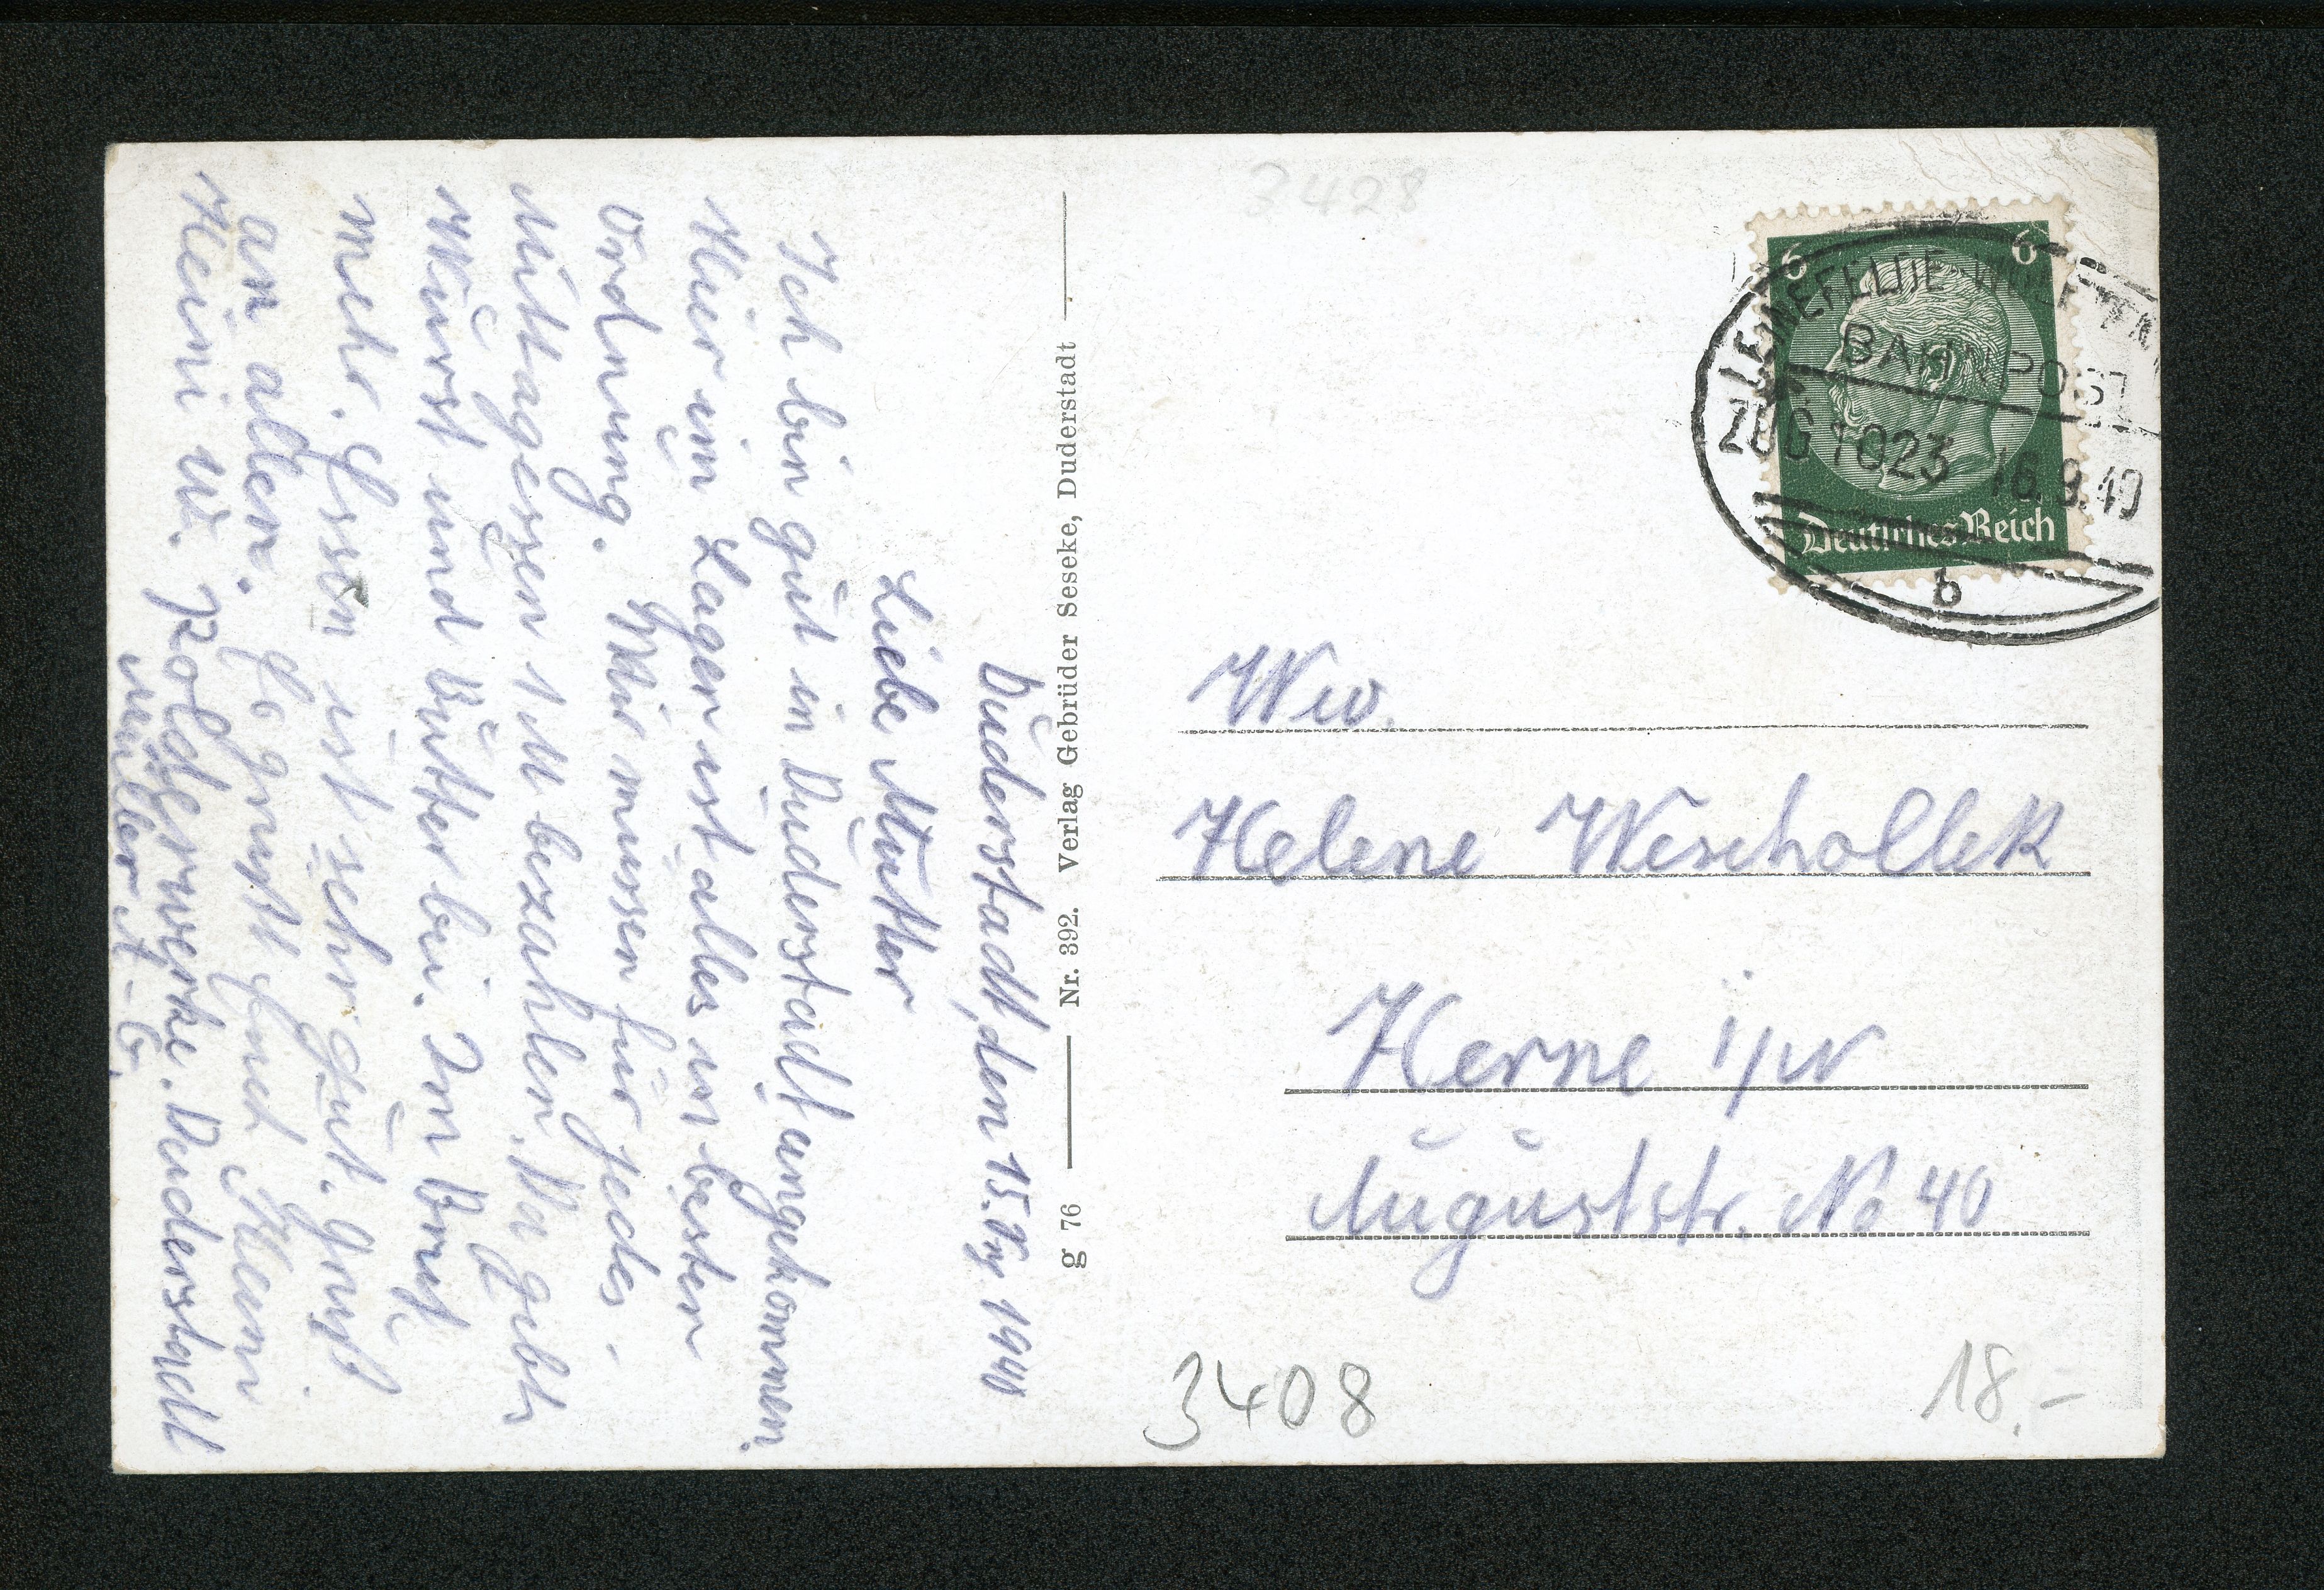 Duderstadt, den 15. 1940
Liebe Mutter
Ich bin gut in Duderstadt angekommen.
Hier im Lager ist alles in besten
Ordnung. Wir müssen für jedes
Mittagessen 1 M bezahlen. Da gebts
Wurst und Butter bei. Zm Brot
mehr. Essen ist sehr gut. Gruß
an allen. Es grüßt Heini
Heini W. Poldgerwerke. Duderstadt
A-G.
g 76 Nr. 392. Verlag Gebrüder Seseke, Duderstadt
3428
6 6
Deutsches Reich
LEINEFELDE-
BAHNPOST
ZUG 1023 16.9.40
b
Ww.
Helene Weschollek
Herne i/W
Auguststr. No 40
3408
18.-